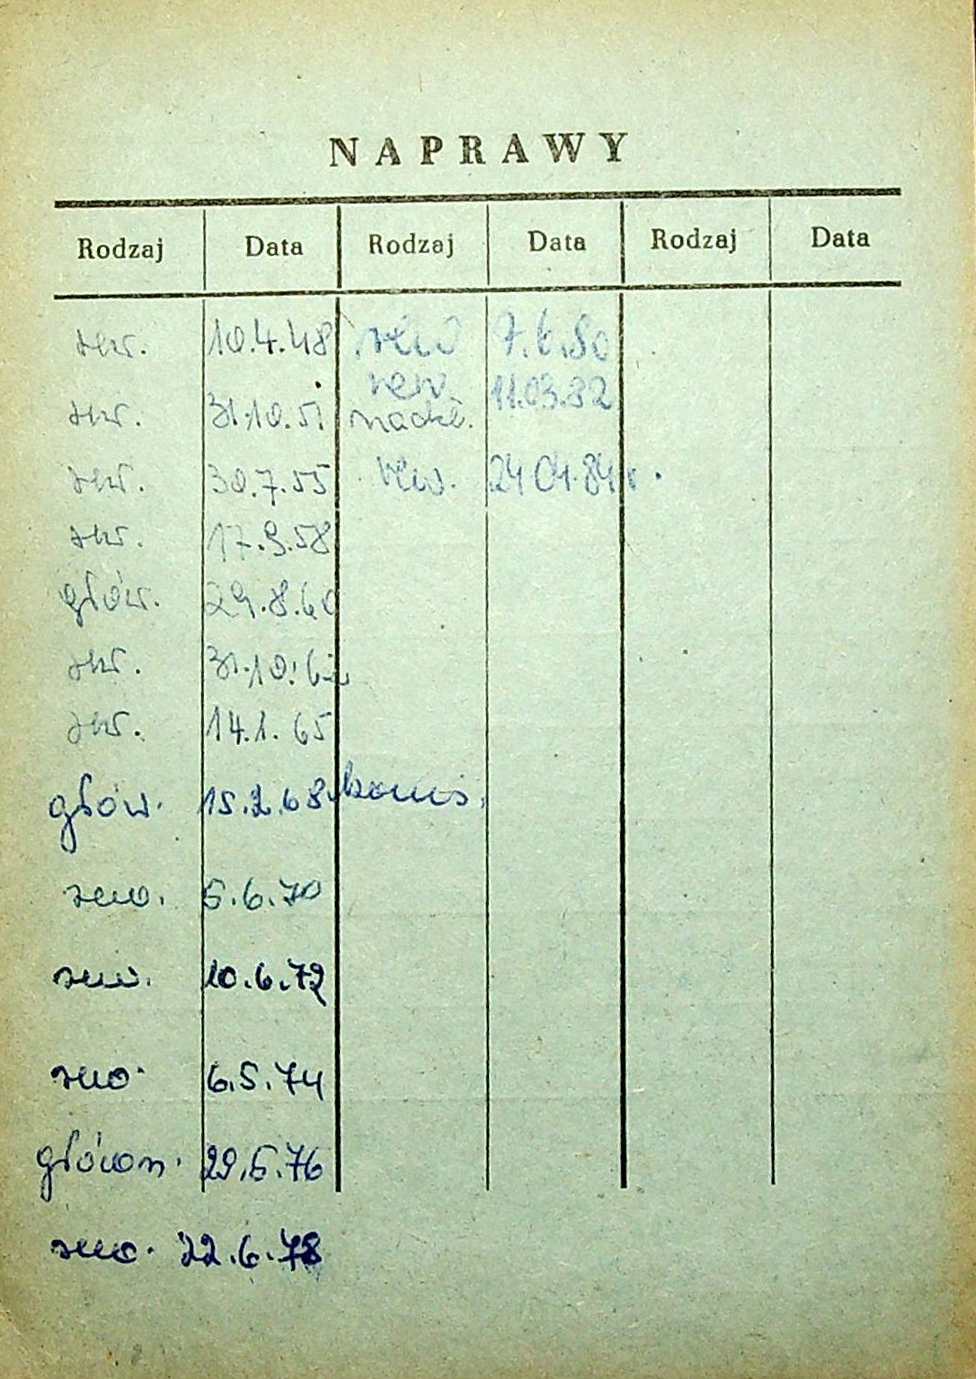 NAPRAWY
Rodzaj Data Rodzaj Data Rodzaj Data
rew. 10.4.48 rew 7.6.80
rew. 31.10.51 rew. nadzw. 11.03.82
rew. 30.7.55 rew. 24 04.84 r.
rew. 17.9.58
głów. 29.8.60
rew. 31.10.62
rew. 14.1.65
głów. 15.2.68 komis.
rew. 5.6.70
rew. 10.6.72
rew. 6.5.74
główn. 29.5.76
rew. 22.6.78